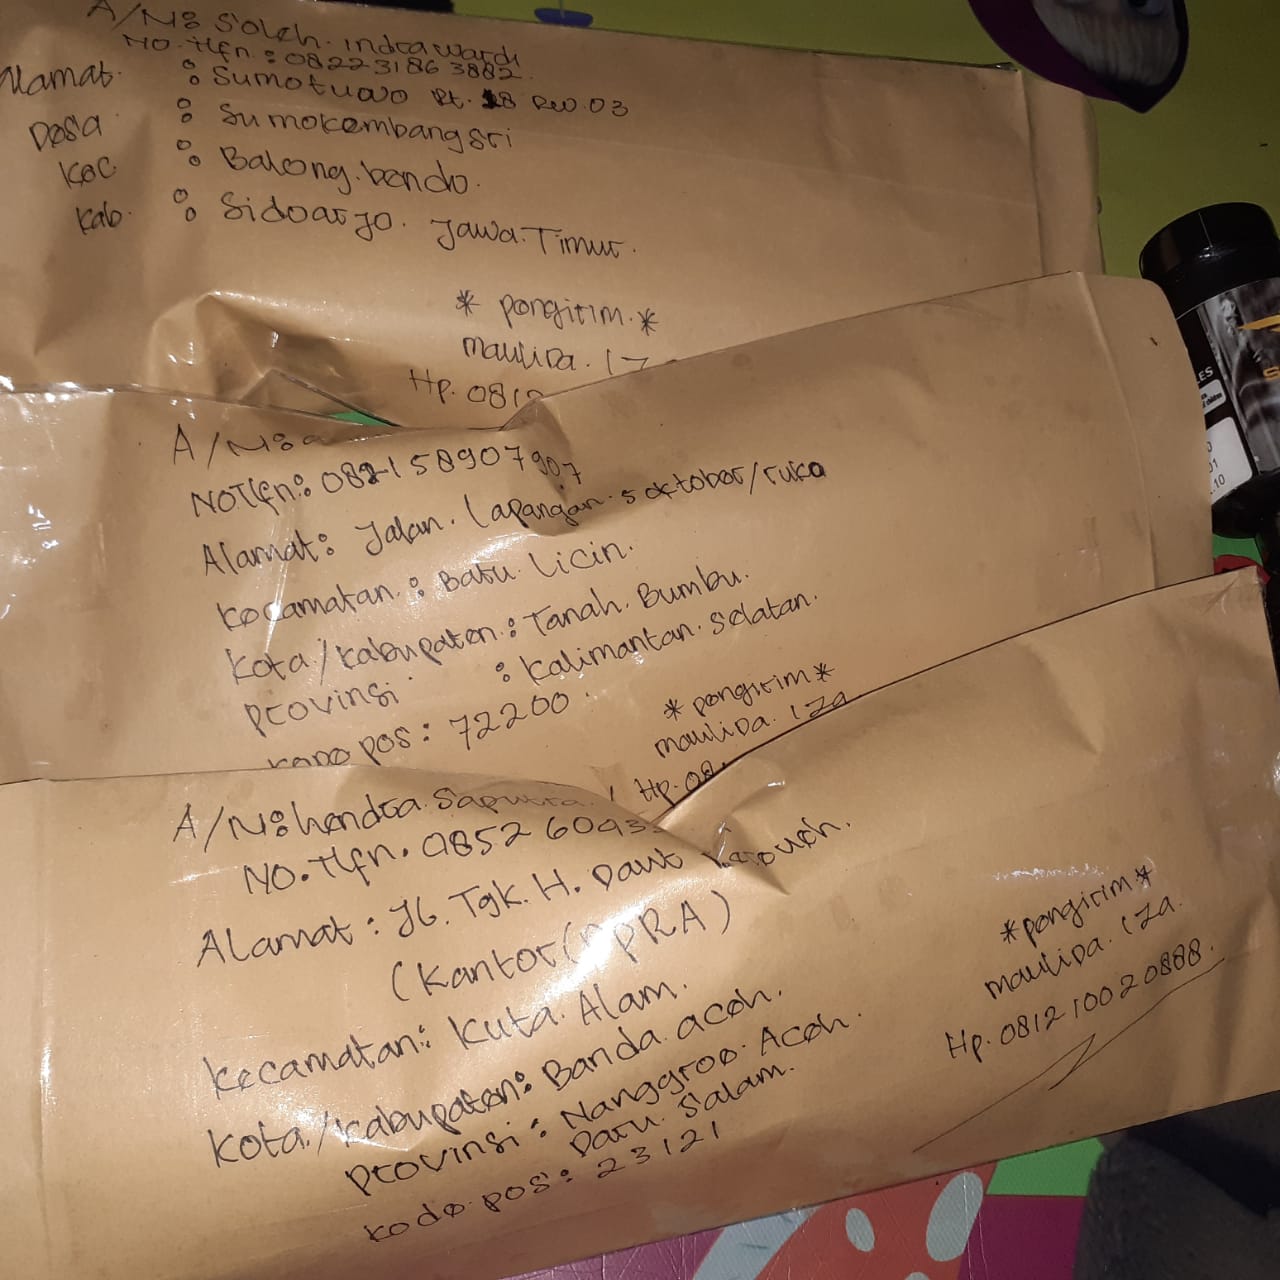 A/N: Soleh. indrawardi
NO. Tlfn. : 082231863882.
Alamat. : Sumotuwo Rt. 18 Rw. 03
Desa : Sumokembangsri
Kec : Balong.bendo.
Kab. : Sidoarjo. Jawa.Timur.
* pengirim. *
maulida. iz
Hp. 081
A/N:
NOTlfn: 082158907907
Alamat: Jalan. Lapangan. 5 oktober/ruko
Kecamatan. : Batu Licin.
Kota/Kabupaten. : Tanah. Bumbu.
Provinsi : Kalimantan. Selatan.
Kode pos : 72200
* pengirim *
maulida. iza
Hp. 08
A/N: hendra. Saputra.
NO. Tlfn. 08526093
Alamat : Jl. Tgk. H. Daut
(Kantor
Kecamatan: Kuta. Alam.
Kota/Kabupaten: Banda. aceh.
Provinsi : Nanggroe. Aceh.
Daru. Salam.
Kode pos : 23121
* pengirim *
maulida. iza.
Hp. 081210020888.